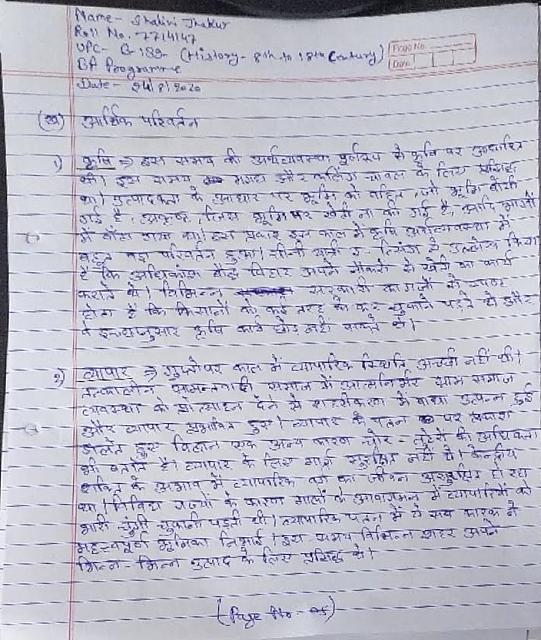 Name- Shalini Thakur
Roll No. 7714147
UPC- G-189- (History- 8th to 18th Century)
Page No.
Date
BA Programme
Date- 24/8/2020
आर्थिक परिवर्तन
1) कृषि ⇒ इस समय की अर्थव्यवस्था पूर्णरूप से कृषि पर आधारित
थी। इस समय मगध और कलिंग चावल के लिए प्रसिद्ध
था। उत्पादकता के आधार पर भूमि को वहित, जो भूमि बोयी
गई है, जिस भूमि पर खेती ना की गई है, आदि भागों
में बाँटा गया था। इस प्रकार इस काल में कृषि अर्थव्यवस्था में
बहुत बड़ा परिवर्तन हुआ। चीनी यात्री इ-त्सिंग ने उल्लेख किया
है कि अधिकांश बौद्ध विहार अपने नौकरों से खेती का कार्य
कराते थे। विभिन्न सरकारी कागजों से स्पष्ट
होता है कि किसानों को कई तरह के कर चुकाने पड़ते थे और
वे इच्छानुसार कृषि कार्य छोड़ नहीं सकते थे।
2) व्यापार ⇒ गुप्तोत्तर काल में व्यापारिक स्थिति अच्छी नहीं थी।
तत्कालीन सामन्तवादी समाज में आत्मनिर्भर ग्राम समाज
व्यवस्था को प्रोत्साहन देने से शहरीकरण में बाधा उत्पन्न हुई
और व्यापार प्रभावित हुआ। व्यापार के पतन पर प्रकाश
डालते हुए विद्वान एक अन्य कारण चोर-लुटेरों की अधिकता
भी बताते हैं। व्यापार के लिए मार्ग सुरक्षित नहीं थे। केन्द्रीय
शक्ति के अभाव में व्यापारिक वर्ग का जीवन असुरक्षित हो रहा
था। विविध राज्यों के कारण मालों के आवागमन में व्यापारियों को
भारी चुंगी चुकानी पड़ती थी। व्यापारिक पतन में ये सब कारक ने
महत्वपूर्ण भूमिका निभाई। इस समय विभिन्न शहर अपने
भिन्न-भिन्न उत्पाद के लिए प्रसिद्ध थे।
(Page No-